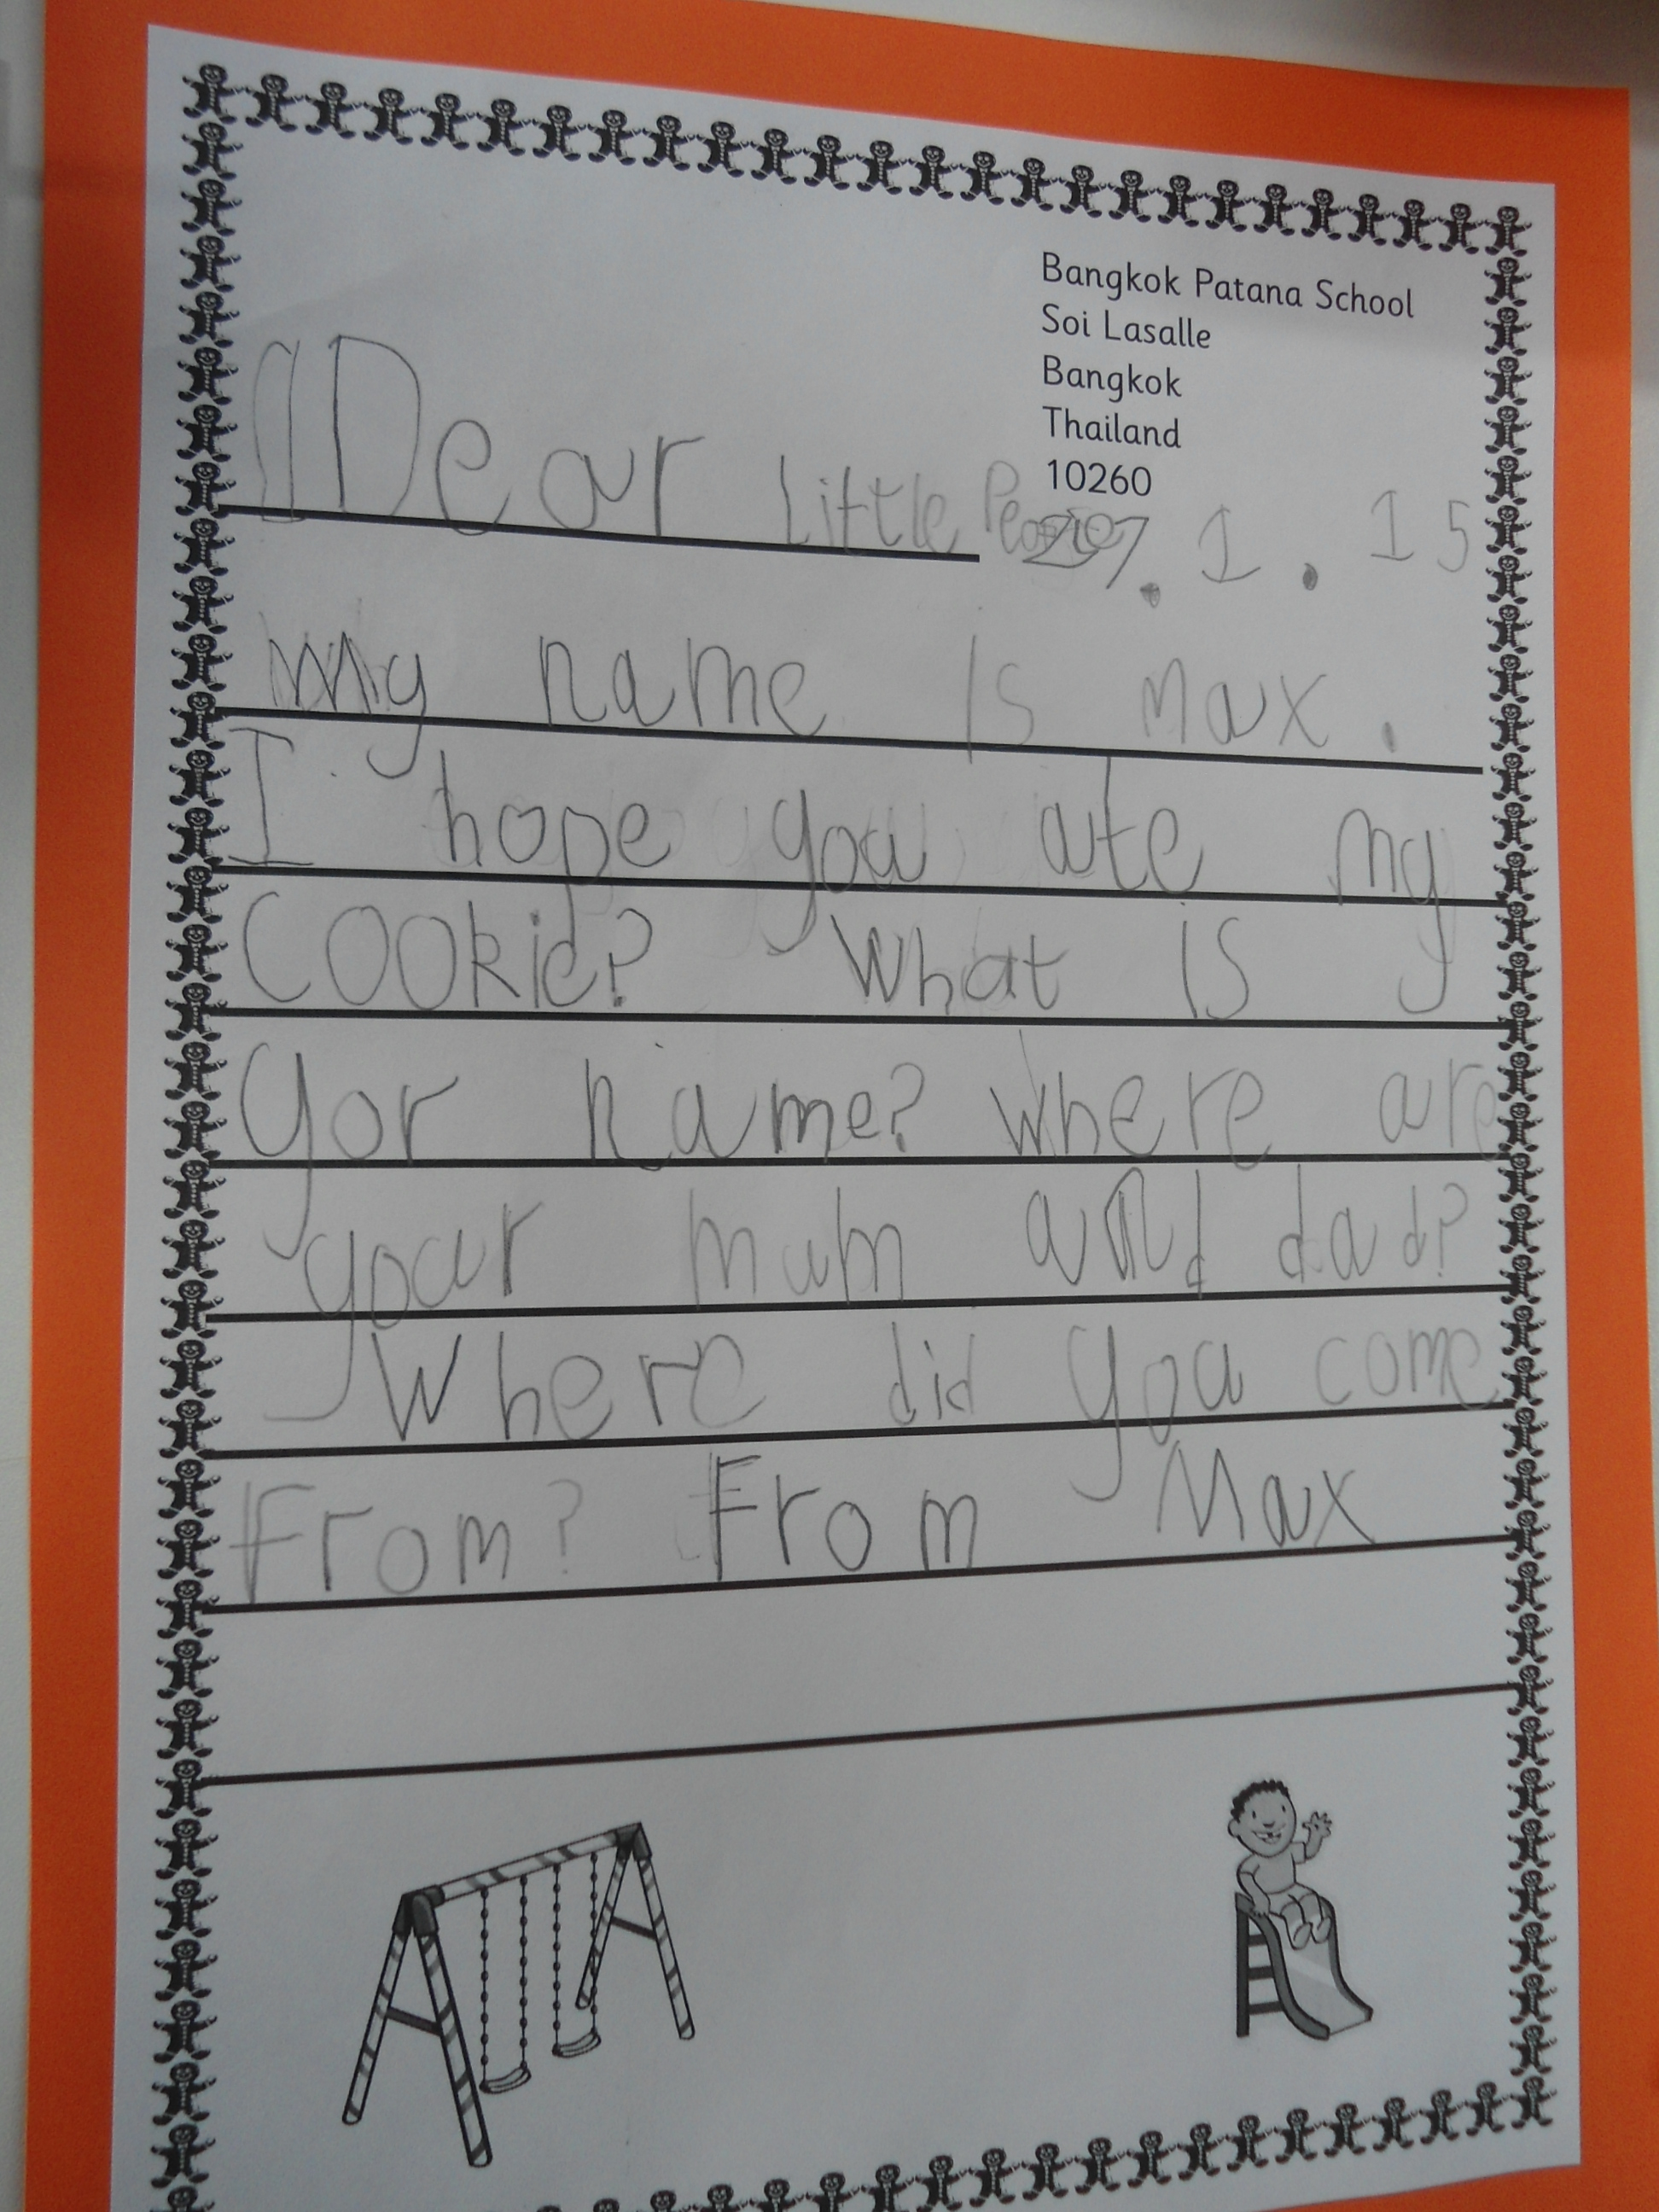 Bangkok Patana School
Soi Lasalle
Bangkok
Thailand
10260
Dear Little People
27.1.15
My name is Max.
I hope you ate my
Cookie? What is
yor name? Where are
your mum and dad?
Where did you come
From? From Max